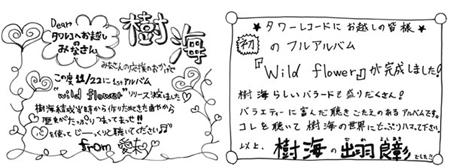 Dear
タワレコへお越しの
みなさん
樹海
みなさんの応援のおかげで
この度11/22に1stアルバム
"wild flower"リリース決定しました♡
樹海結成当時から作りためてきた曲やら
歴史がたっぷりつまってます!!
心を使ってじーっくり聴いて下さい♫
from 愛未
★タワーレコードにお越しの皆様★
初のフルアルバム
『Wild flower』が完成しました!
樹海らしいバラードも盛りだくさん!
バラエティーに富んだ聴きごたえのあるアルバムです。
コレを聴いて樹海の世界にどっぷりハマって下さい。
以上、樹海の出羽良彰でした。